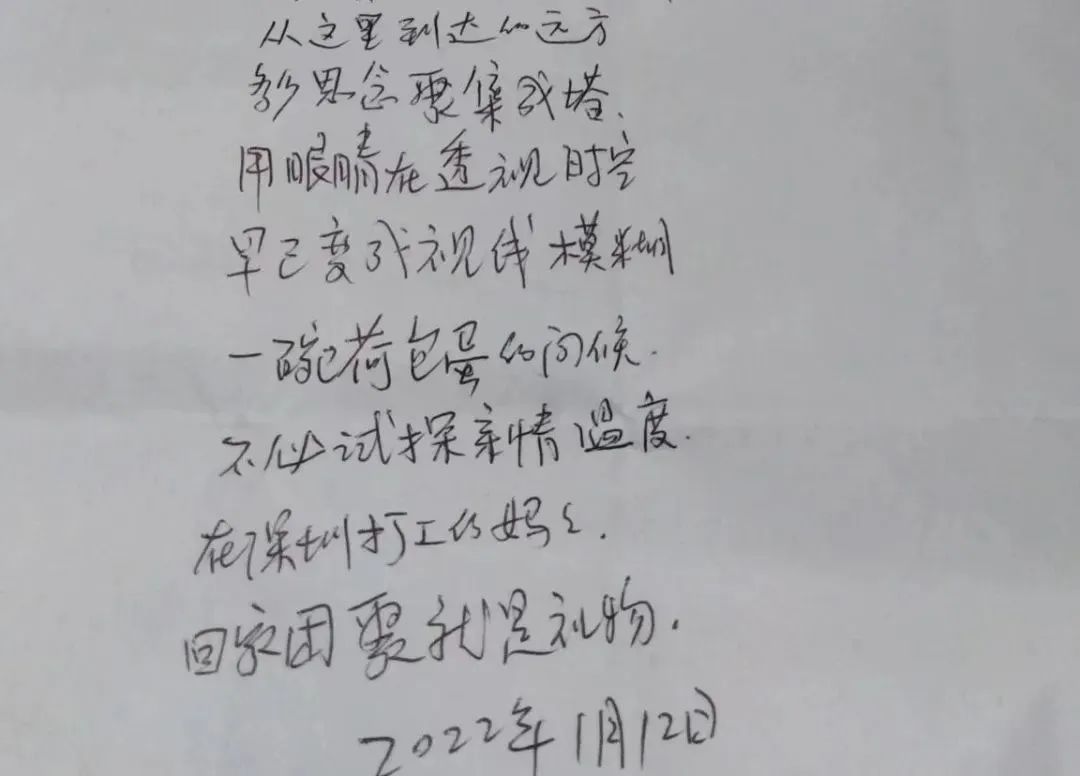 从这里到达的远方
多少思念聚集成塔.
用眼睛在透视时空
早已变成视线模糊
一碗荷包蛋的问候.
不似试探亲情温度.
在深圳打工的妈々.
回家团聚就是礼物.
2022年1月12日